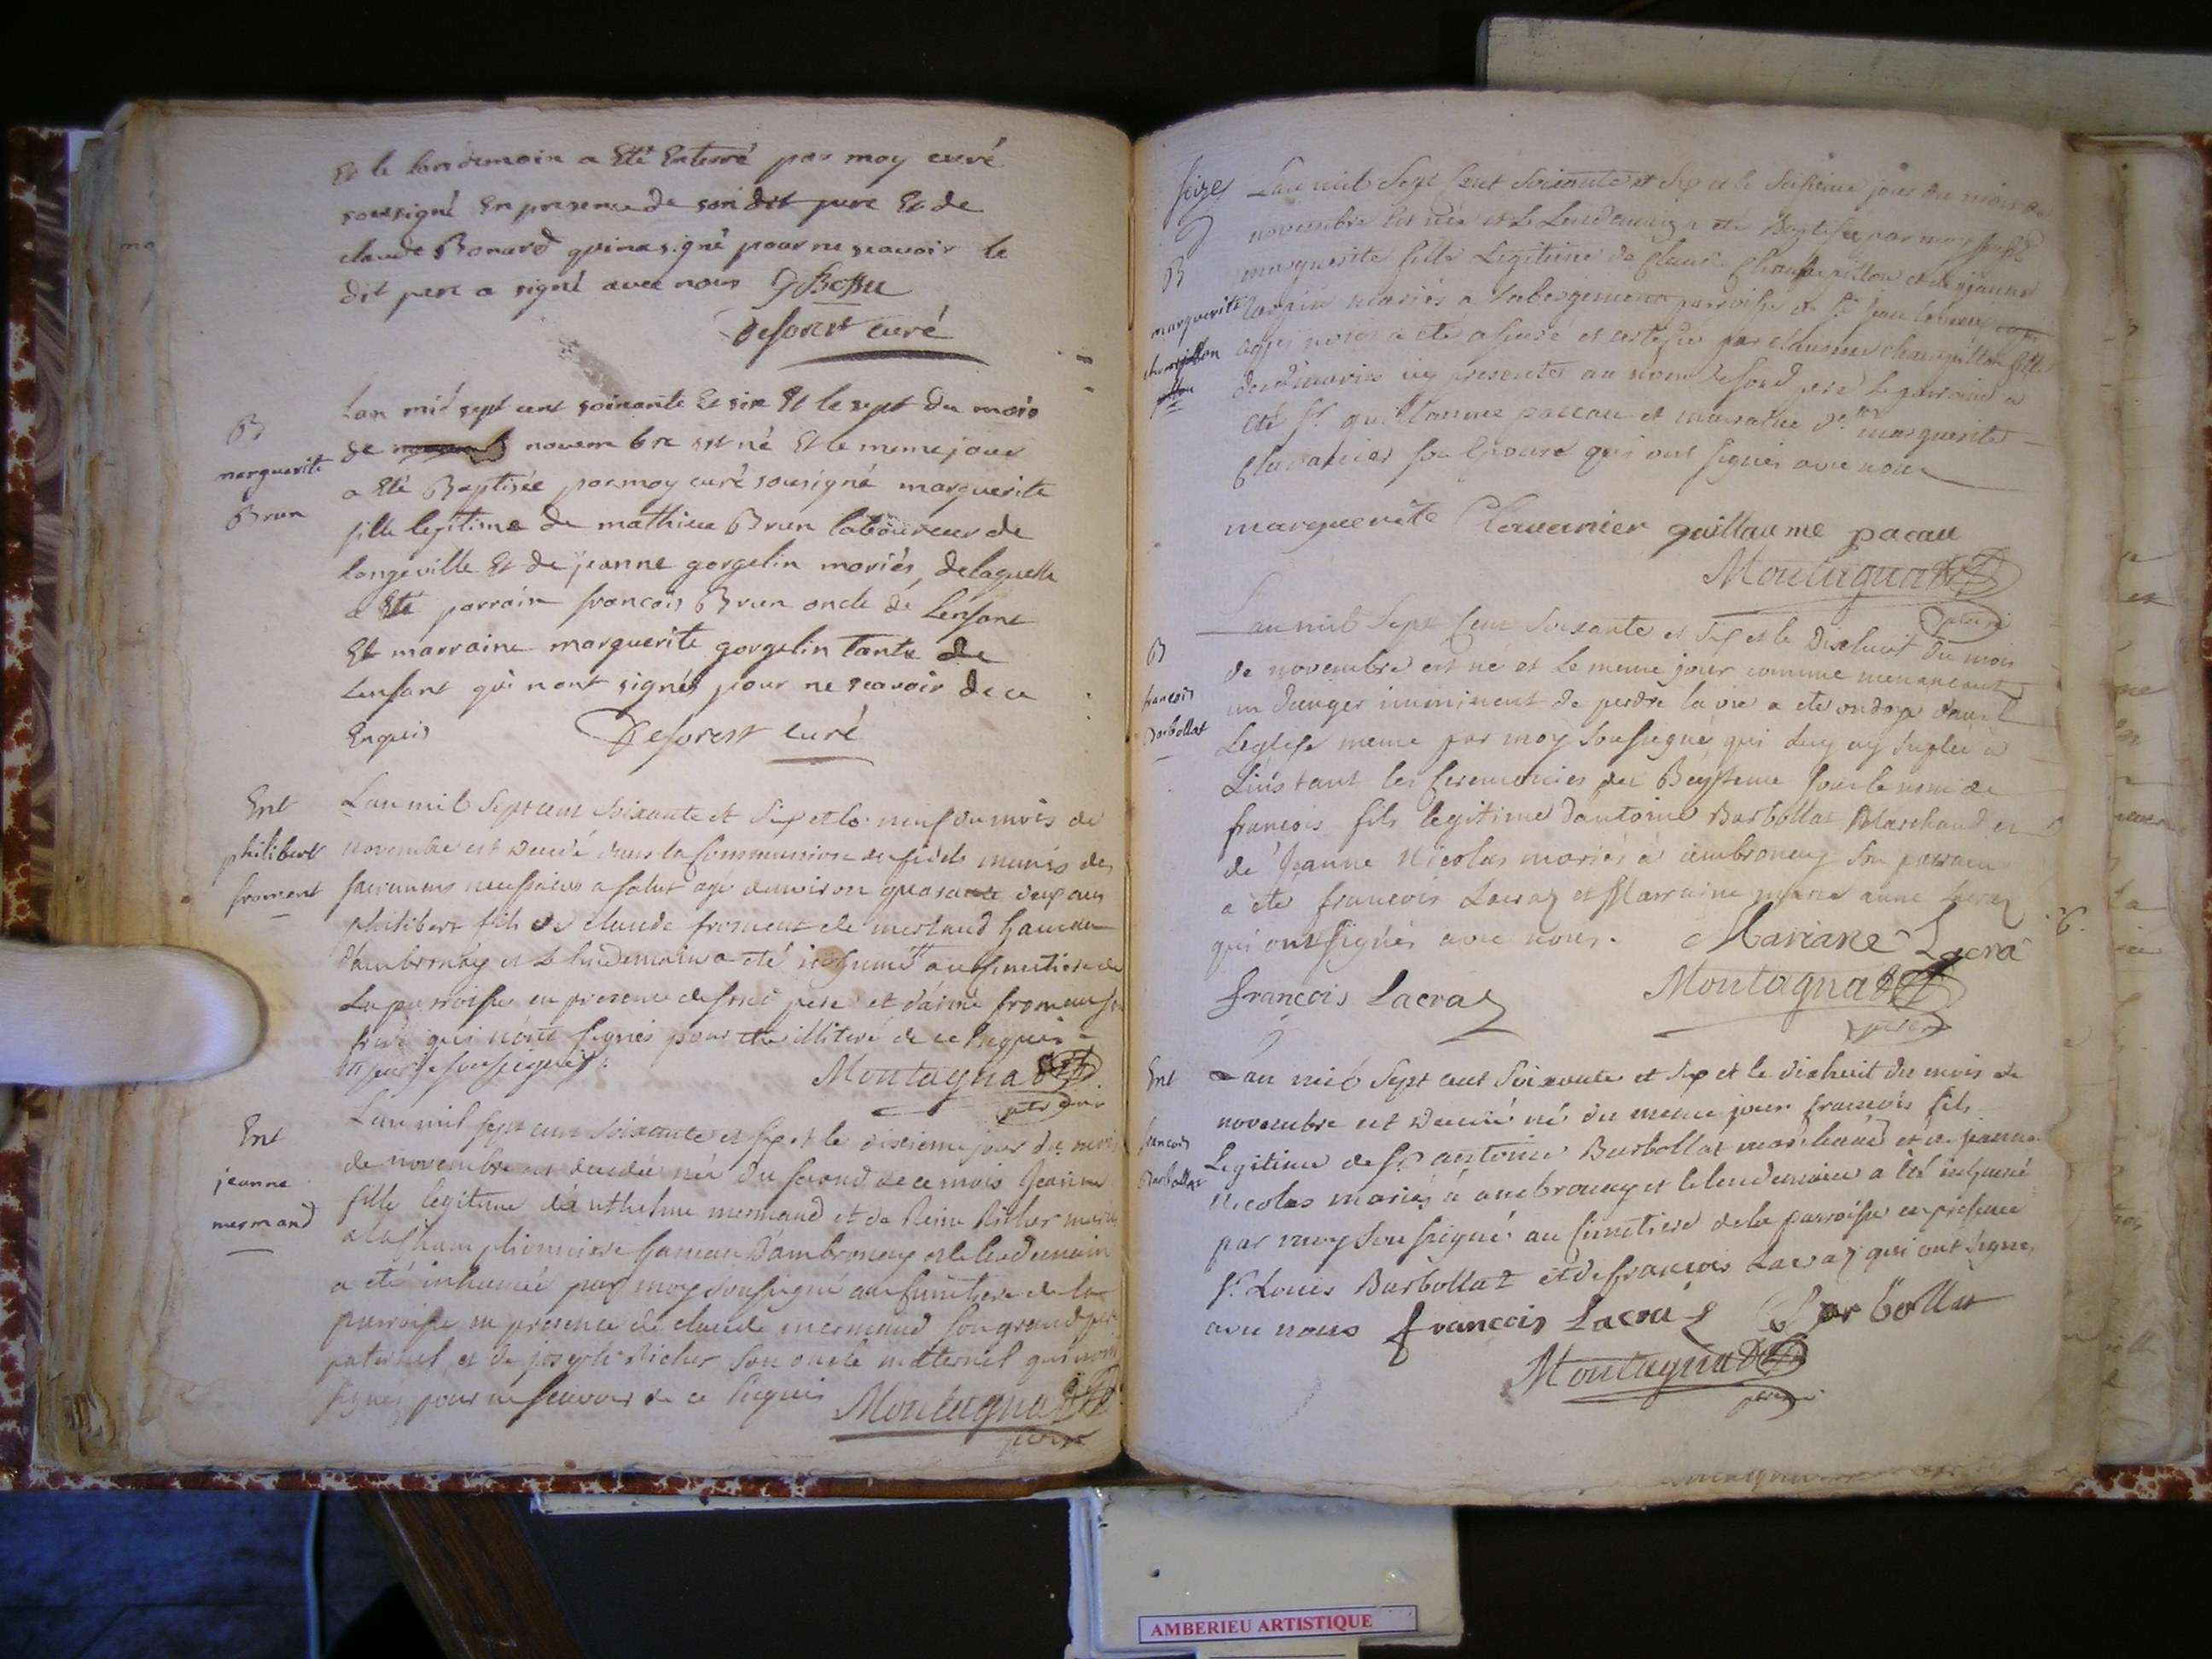 Et le landemain a Eté Enterré par moy curé
sousigné En presence de son dit pere Et de
claude Bonard qui na signé pour ne scavoir le
dit pere a signé avec nous
Deforest curé
B
marguerite
Brun
Lan mil sept cent soixante Et six Et le sept du mois
de novembre est né Et le meme jour
a Eté Baptisée par moy curé sousigné marguerite
fille legitime de mathieu Brun laboureur de
longeville Et de jeanne gorgelin mariés, delaquelle
a Eté parrain francois Brun oncle de Lenfant
Et marraine marguerite gorgelin Tante de
Lenfant qui nont signés pour ne scavoir de ce
Enquis Deforest curé
Ent
philibert
froment
Lan mil sept cent soixante et six et le neuf du mois de
novembre est decedé dans la Communion des fidels munis des
sacremens necessaires a salut agé denviron quarante deux ans
philibert fils de claude froment de merland hameau
dambronay et le lendemain a eté inhumé au simetiere de
la parroisse en presence de son pere et daimé froment son
frere qui nont signés pour etre illiteré de ce Enquis
Montagnat
Ent
jeanne
mermand
Lan mil sept cent soixante et six et le dixieme jour du mois
de novembre est decedée née du second de ce mois Jeanne
fille legitime danthelme mermand et de Reine Richer mariés
a la Championniere hameau D'ambronay et le lendemain
a eté inhumée par moy soussigné au simetiere de la
parroisse en presence de claude mermand son grand pere
paternel et de joseph Richer son oncle maternel qui nont
signés pour ne scavoir de ce Enquis Montagnat
seize
B
marguerite
Lan mil sept cent soixante et six et le seizieme jour du mois de
novembre est née et le Lendemain a eté Baptisée par moy
marguerite fille Legitime de Claude et de jeanne
mariés a parroisse de St jean
a eté assuré et par
presente au nom de son pere Le parrain a
eté Sr guillaume paccau et marraine marguerite
son Epouse qui ont signés avec nous
marguerite guillaume pacau
Montagnat
B
francois
Barbollat
Lan mil sept cent soixante et six et le dixhuit du mois
de novembre est né et le meme jour comme menaceant
un danger imminent de perdre la vie a eté ondoyé dans
Leglise meme par moy soussigné qui luy ay supleé a
Linstant les ceremonies du Bapteme sous le nom de
francois fils legitime dantoine Barbollat Marchand et
de Jeanne Nicolas mariés a ambronay son parrain
a eté francois Lacraz et Marraine marie anne Lacraz
qui ont signés avec nous. Mariane Lacra
francois Lacraz Montagnat
Ent
francois
Barbollat
Lan mil sept cent soixante et six et le dixhuit du mois de
novembre est decedé né du meme jour francois fils
Legitime de Sr antoine Barbollat marchand et de jeanne
Nicolas mariés a ambronay et le lendemain a eté inhumé
par moy soussigné au simetiere de la parroisse en presence
Sr Louis Barbollat et de francois Lacraz qui ont signé
avec nous francois Lacraz Barbollat
Montagnat
AMBERIEU ARTISTIQUE